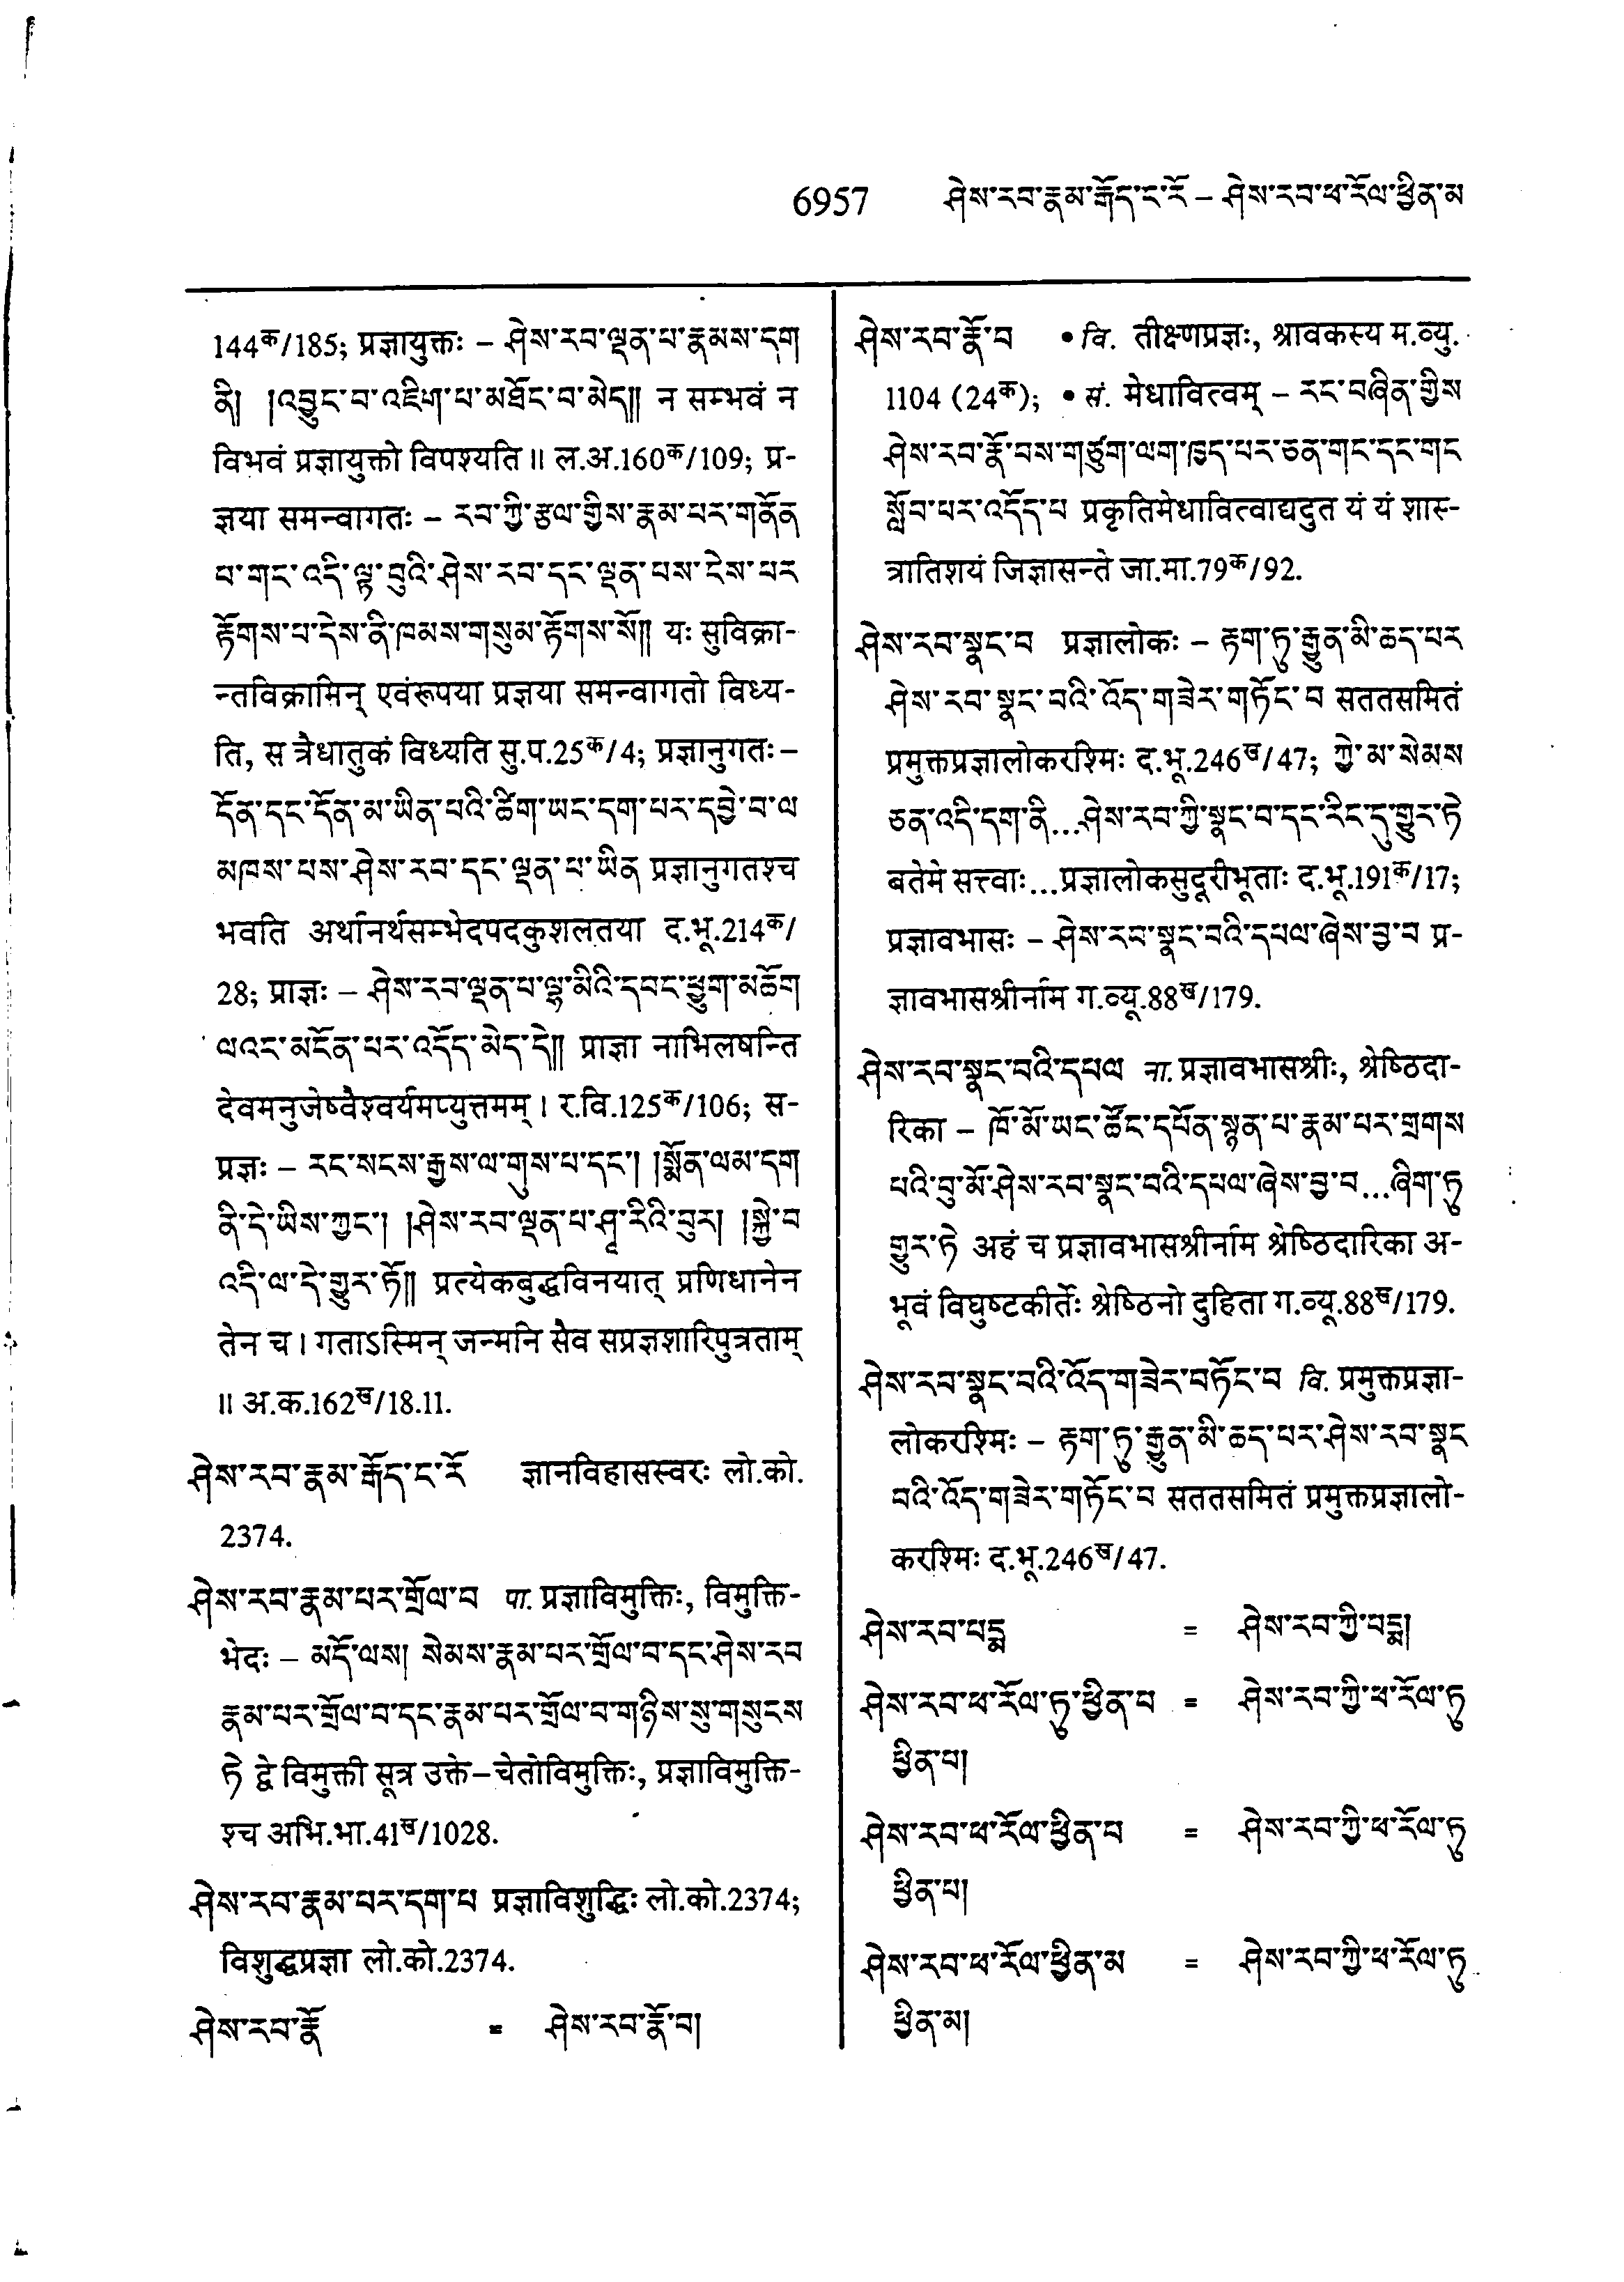 6957 ཤེས་རབ་རྣམ་རྒོད་ང་རོ – ཤེས་རབ་ཕ་རོལ་ཕྱིན་མ
144क/185; प्रज्ञायुक्तः – ཤེས་རབ་ལྡན་པ་རྣམས་དག
ནི། །འབྱུང་བ་འཇིག་པ་མཐོང་བ་མེད།། न सम्भवं न
विभवं प्रज्ञायुक्तो विपश्यति ॥ ल.अ.160क/109; प्र-
ज्ञया समन्वागतः – རབ་ཀྱི་རྩལ་གྱིས་རྣམ་པར་གནོན
པ་གང་འདི་ལྟ་བུའི་ཤེས་རབ་དང་ལྡན་པས་ངེས་པར
རྟོགས་པ་དེས་ནི་ཁམས་གསུམ་རྟོགས་སོ།། यः सुविक्रा-
न्तविक्रामिन् एवंरूपया प्रज्ञया समन्वागतो विध्य-
ति, स त्रैधातुकं विध्यति सु.प.25क/4; प्रज्ञानुगतः –
དོན་དང་དོན་མ་ཡིན་པའི་ཚིག་ཡང་དག་པར་དབྱེ་བ་ལ
མཁས་པས་ཤེས་རབ་དང་ལྡན་པ་ཡིན प्रज्ञानुगतश्च
भवति अर्थानर्थसम्भेदपदकुशलतया द.भू.214क/
28; प्राज्ञः – ཤེས་རབ་ལྡན་པ་ལྷ་མིའི་དབང་ཕྱུག་མཆོག
ལའང་མངོན་པར་འདོད་མེད་དེ།། प्राज्ञा नाभिलषन्ति
देवमनुजेष्वैश्वर्यमप्युत्तमम् । र.वि.125क/106; स-
प्रज्ञः – རང་སངས་རྒྱས་ལ་གུས་པ་དང་། །སྨོན་ལམ་དག
ནི་དེ་ཡིས་ཀྱང་། །ཤེས་རབ་ལྡན་པ་ཤཱ་རིའི་བུར། །སྐྱེ་བ
འདི་ལ་དེ་གྱུར་ཏོ།། प्रत्येकबुद्धविनयात् प्रणिधानेन
तेन च । गताऽस्मिन् जन्मनि सैव सप्रज्ञशारिपुत्रताम्
॥ अ.क.162ख/18.11.
ཤེས་རབ་རྣམ་རྒོད་ང་རོ ज्ञानविहासस्वरः लो.को.
2374.
ཤེས་རབ་རྣམ་པར་གྲོལ་བ पा. प्रज्ञाविमुक्तिः, विमुक्ति-
भेदः – མདོ་ལས། སེམས་རྣམ་པར་གྲོལ་བ་དང་ཤེས་རབ
རྣམ་པར་གྲོལ་བ་དང་རྣམ་པར་གྲོལ་བ་གཉིས་སུ་གསུངས
ཏེ द्वे विमुक्ती सूत्र उक्ते – चेतोविमुक्तिः, प्रज्ञाविमुक्ति-
श्च अभि.भा.41ख/1028.
ཤེས་རབ་རྣམ་པར་དག་པ प्रज्ञाविशुद्धिः लो.को.2374;
विशुद्धप्रज्ञा लो.को.2374.
ཤེས་རབ་རྣོ = ཤེས་རབ་རྣོ་བ།
ཤེས་རབ་རྣོ་བ • वि. तीक्ष्णप्रज्ञः, श्रावकस्य म.व्यु.
1104 (24क); • सं. मेधावित्वम् – རང་བཞིན་གྱིས
ཤེས་རབ་རྣོ་བས་གཙུག་ལག་ཁྱད་པར་ཅན་གང་དང་གང
སློབ་པར་འདོད་པ प्रकृतिमेधावित्वाद्यदुत यं यं शास-
त्रातिशयं जिज्ञासन्ते जा.मा.79क/92.
ཤེས་རབ་སྣང་བ प्रज्ञालोकः – རྟག་ཏུ་རྒྱུན་མི་ཆད་པར
ཤེས་རབ་སྣང་བའི་འོད་གཟེར་གཏོང་བ सततसमितं
प्रमुक्तप्रज्ञालोकरश्मिः द.भू.246ख/47; ཀྱེ་མ་སེམས
ཅན་འདི་དག་ནི...ཤེས་རབ་ཀྱི་སྣང་བ་དང་རིང་དུ་གྱུར་ཏེ
बतेमे सत्त्वाः...प्रज्ञालोकसुदूरीभूताः द.भू.191क/17;
प्रज्ञावभासः – ཤེས་རབ་སྣང་བའི་དཔལ་ཞེས་བྱ་བ प्र-
ज्ञावभासश्रीर्नाम ग.व्यू.88ख/179.
ཤེས་རབ་སྣང་བའི་དཔལ ना. प्रज्ञावभासश्रीः, श्रेष्ठिदा-
रिका – ཁོ་མོ་ཡང་ཚོང་དཔོན་སྙན་པ་རྣམ་པར་གྲགས
པའི་བུ་མོ་ཤེས་རབ་སྣང་བའི་དཔལ་ཞེས་བྱ་བ...ཞིག་ཏུ
གྱུར་ཏེ अहं च प्रज्ञावभासश्रीर्नाम श्रेष्ठिदारिका अ-
भूवं विघुष्टकीर्तेः श्रेष्ठिनो दुहिता ग.व्यू.88ख/179.
ཤེས་རབ་སྣང་བའི་འོད་གཟེར་བཏོང་བ वि. प्रमुक्तप्रज्ञा-
लोकरश्मिः – རྟག་ཏུ་རྒྱུན་མི་ཆད་པར་ཤེས་རབ་སྣང
བའི་འོད་གཟེར་གཏོང་བ सततसमितं प्रमुक्तप्रज्ञालो-
करश्मिः द.भू.246ख/47.
ཤེས་རབ་པདྨ = ཤེས་རབ་ཀྱི་པདྨ།
ཤེས་རབ་ཕ་རོལ་ཏུ་ཕྱིན་པ = ཤེས་རབ་ཀྱི་ཕ་རོལ་ཏུ
ཕྱིན་པ།
ཤེས་རབ་ཕ་རོལ་ཕྱིན་པ = ཤེས་རབ་ཀྱི་ཕ་རོལ་ཏུ
ཕྱིན་པ།
ཤེས་རབ་ཕ་རོལ་ཕྱིན་མ = ཤེས་རབ་ཀྱི་ཕ་རོལ་ཏུ
ཕྱིན་མ།